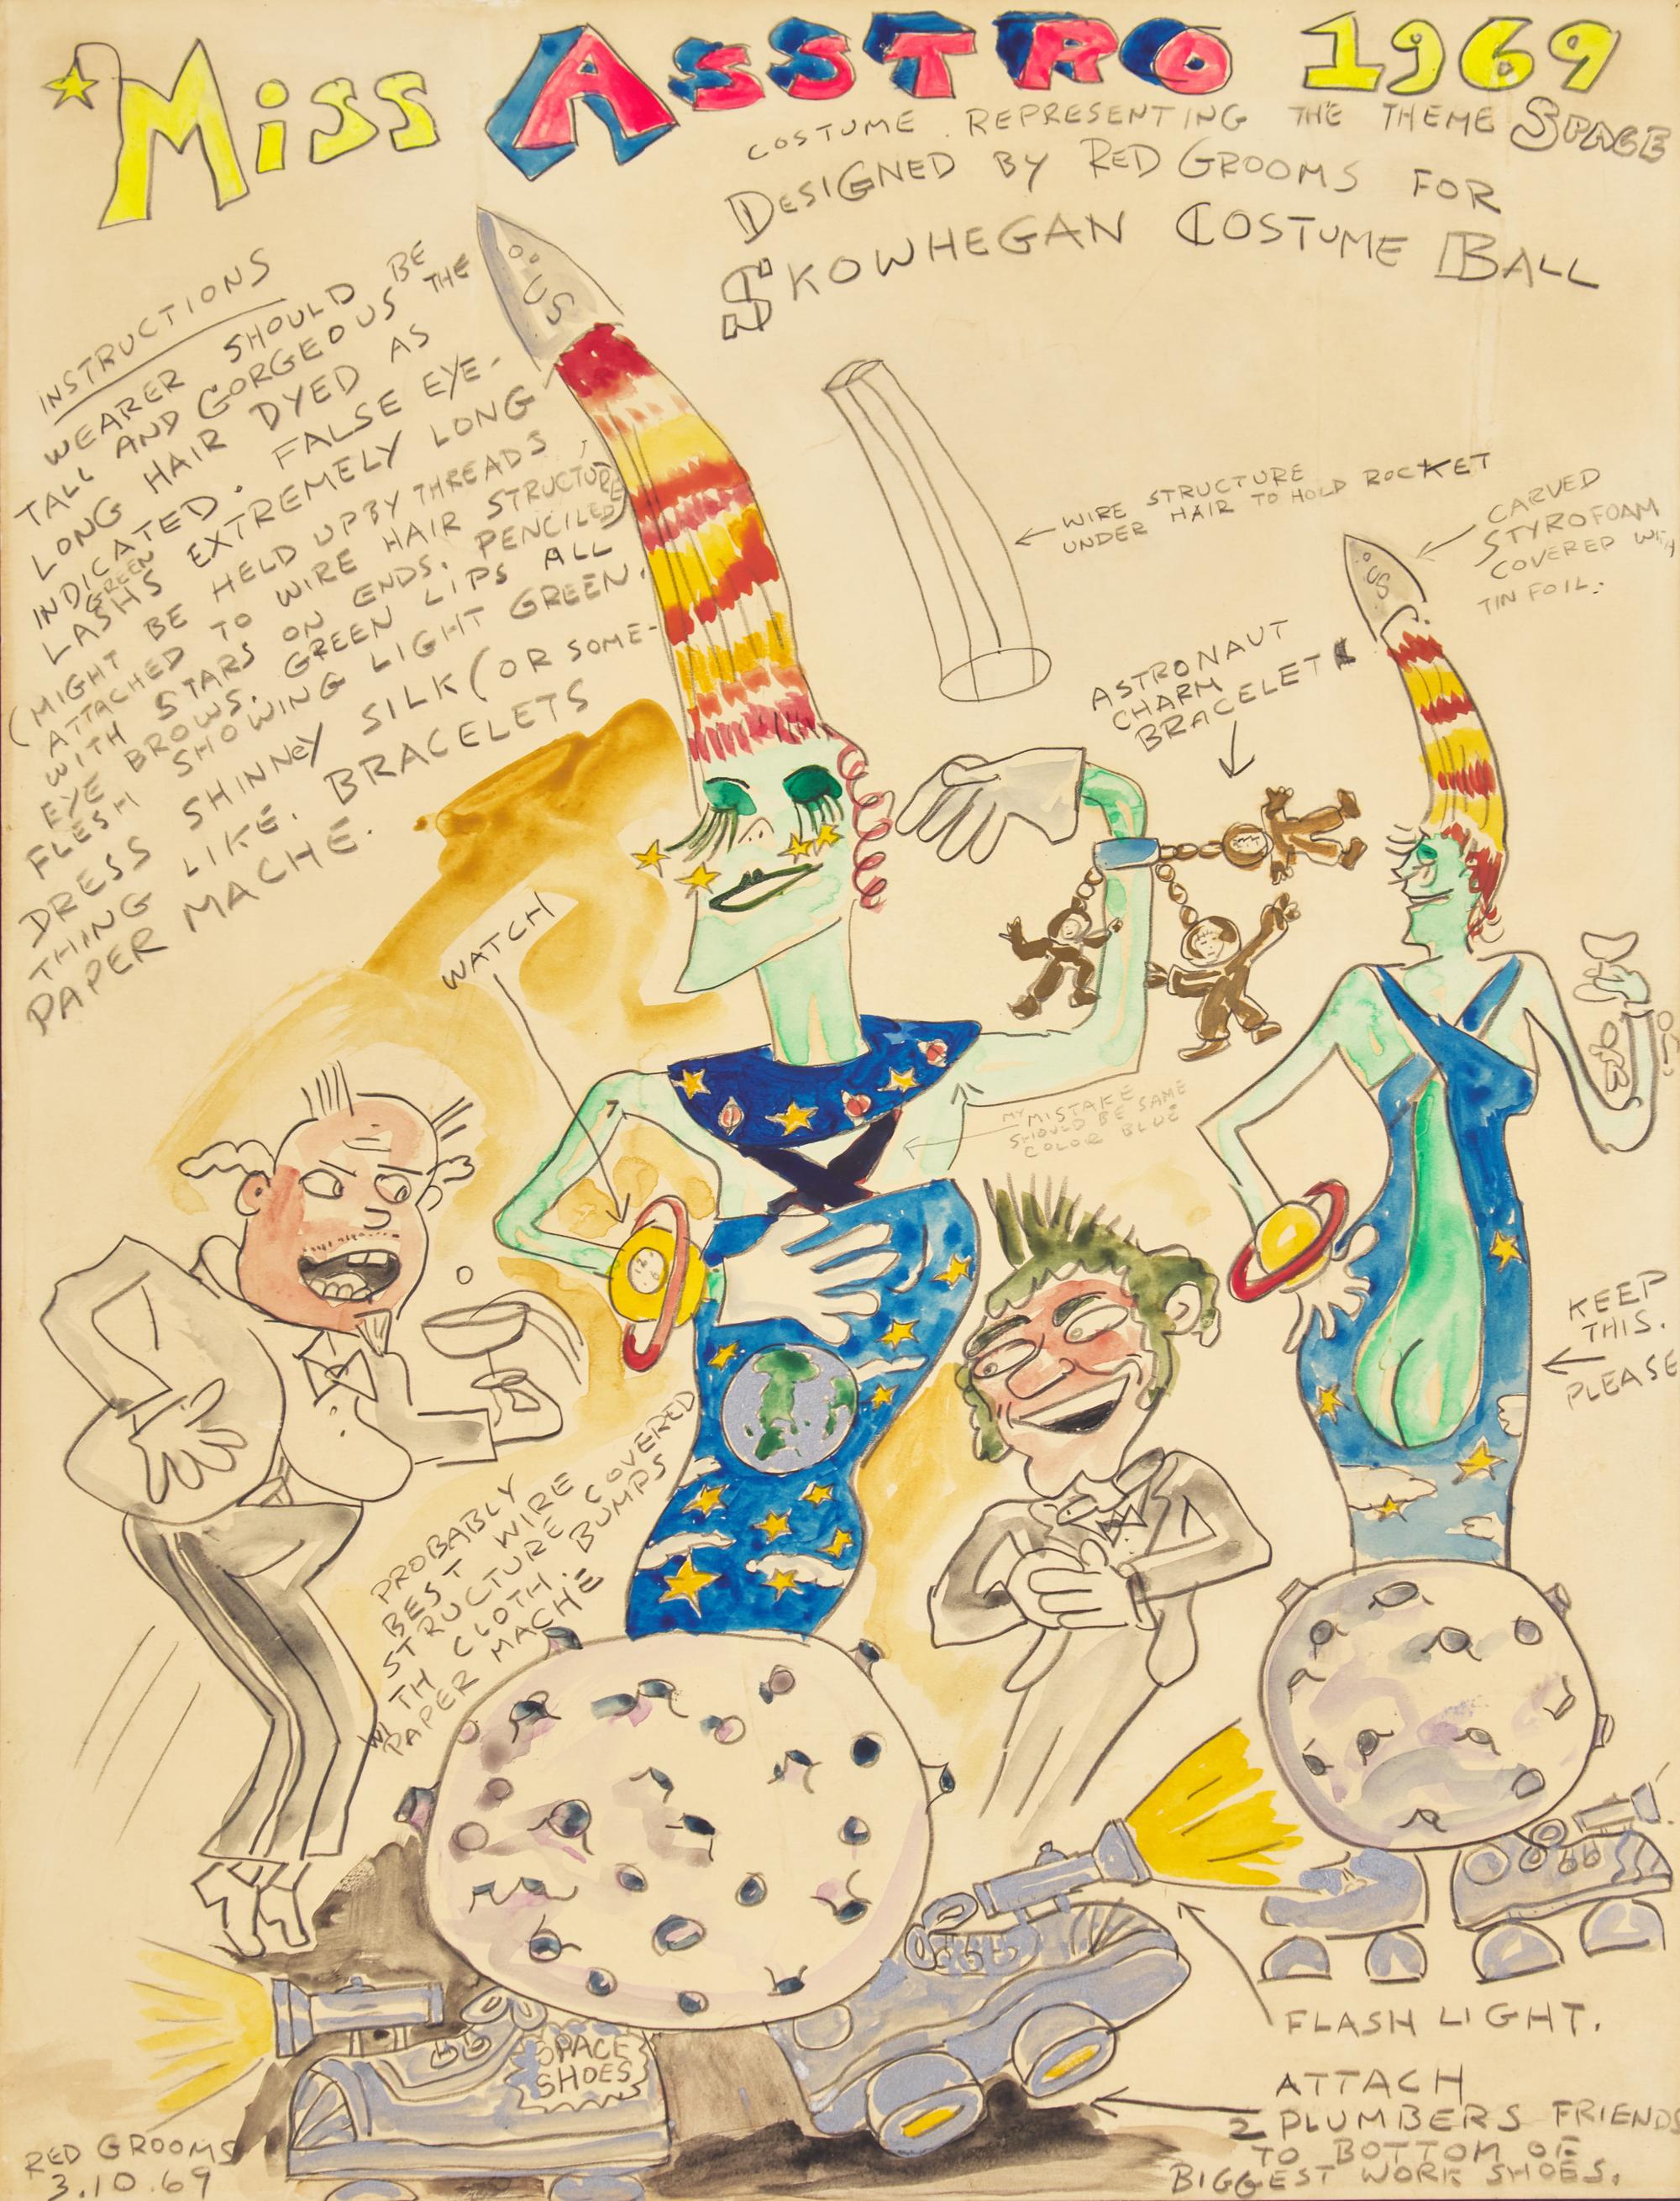 MISS ASSTRO 1969
COSTUME REPRESENTING THE THEME SPACE
DESIGNED BY RED GROOMS FOR
SKOWHEGAN COSTUME BALL
INSTRUCTIONS
WEARER SHOULD BE
TALL AND GORGEOUS THE
LONG HAIR DYED AS
INDICATED. FALSE EYE-
GREEN
LASHS EXTREMELY LONG
(MIGHT BE HELD UP BY THREADS
ATTACHED TO WIRE HAIR STRUCTURE)
WITH STARS ON ENDS. PENCILED
EYE BROWS. GREEN LIPS ALL
FLESH SHOWING LIGHT GREEN.
DRESS SHINNEY SILK (OR SOME-
THING LIKE. BRACELETS
PAPER MACHE.
US
WIRE STRUCTURE
UNDER HAIR TO HOLD ROCKET
CARVED
STYROFOAM
COVERED WITH
TIN FOIL.
US
ASTRONAUT
CHARM
BRACELET
WATCH
MY MISTAKE
SHOULD BE SAME
COLOR BLUE
KEEP
THIS.
PLEASE
PROBABLY
BEST WIRE
STRUCTURE COVERED
WITH CLOTH. BUMPS
PAPER MACHE
FLASH LIGHT.
SPACE
SHOES
ATTACH
2 PLUMBERS FRIENDS
TO BOTTOM OF
BIGGEST WORK SHOES.
RED GROOMS
3.10.69